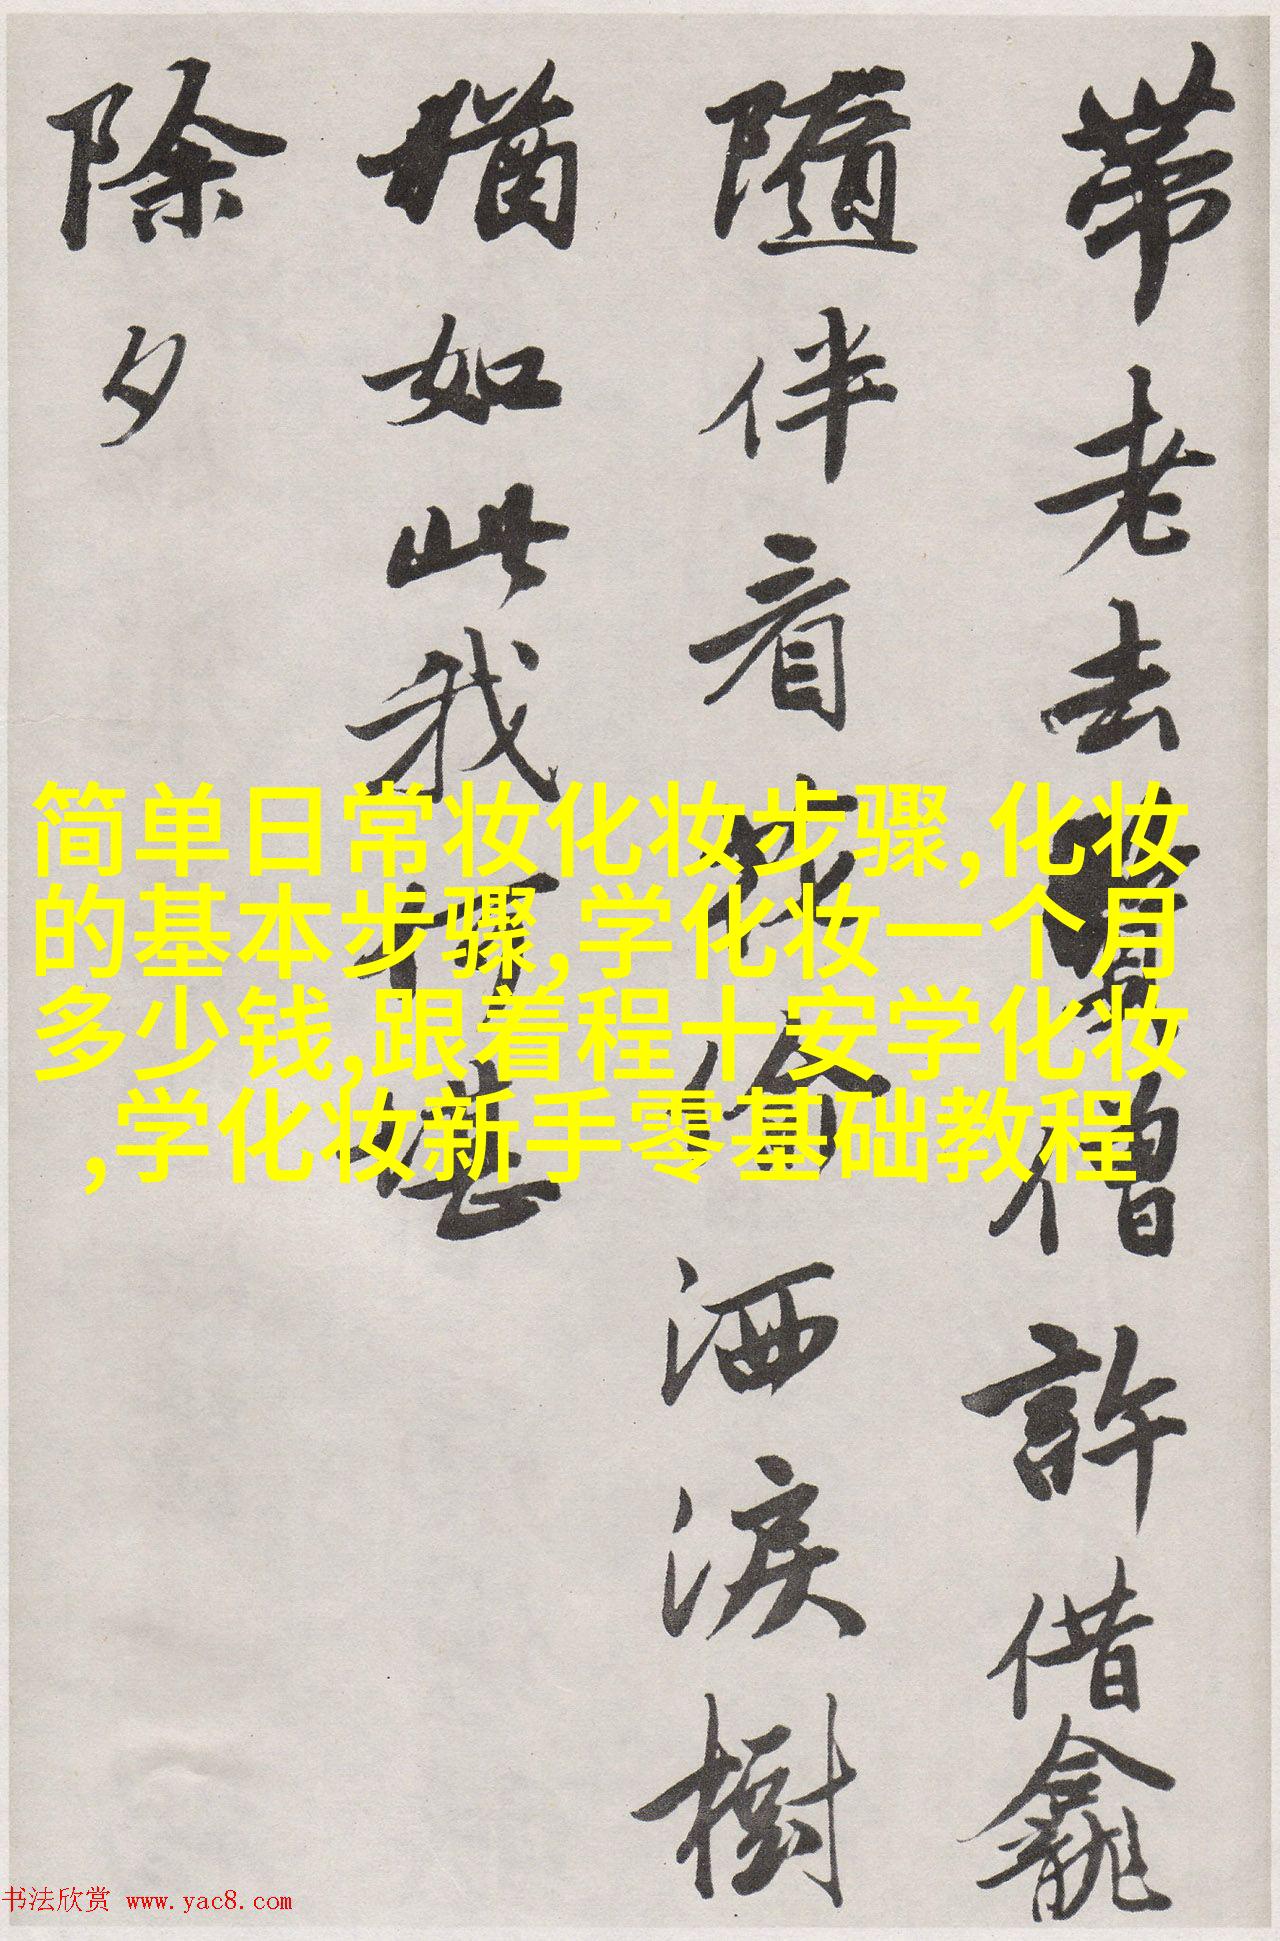 帶老去僧許借龕
隨伴看花偷洒淚樹
猶如此我何堪
除夕
简单日常妆化妆步骤,化妆
的基本步骤,学化妆一个月
多少钱,跟着程十安学化妆
,学化妆新手零基础教程
书法欣赏 www.yac8.com